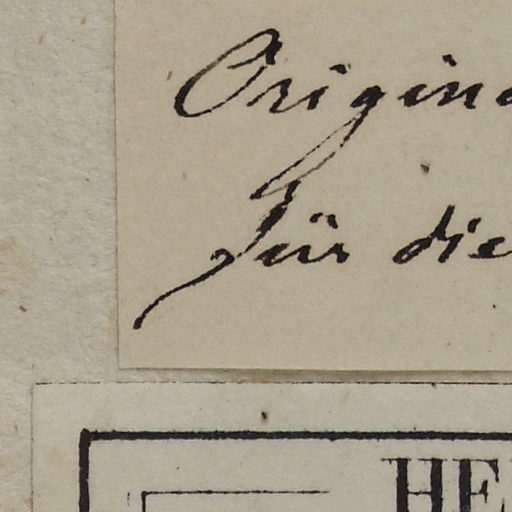 Origina
Für die
HE